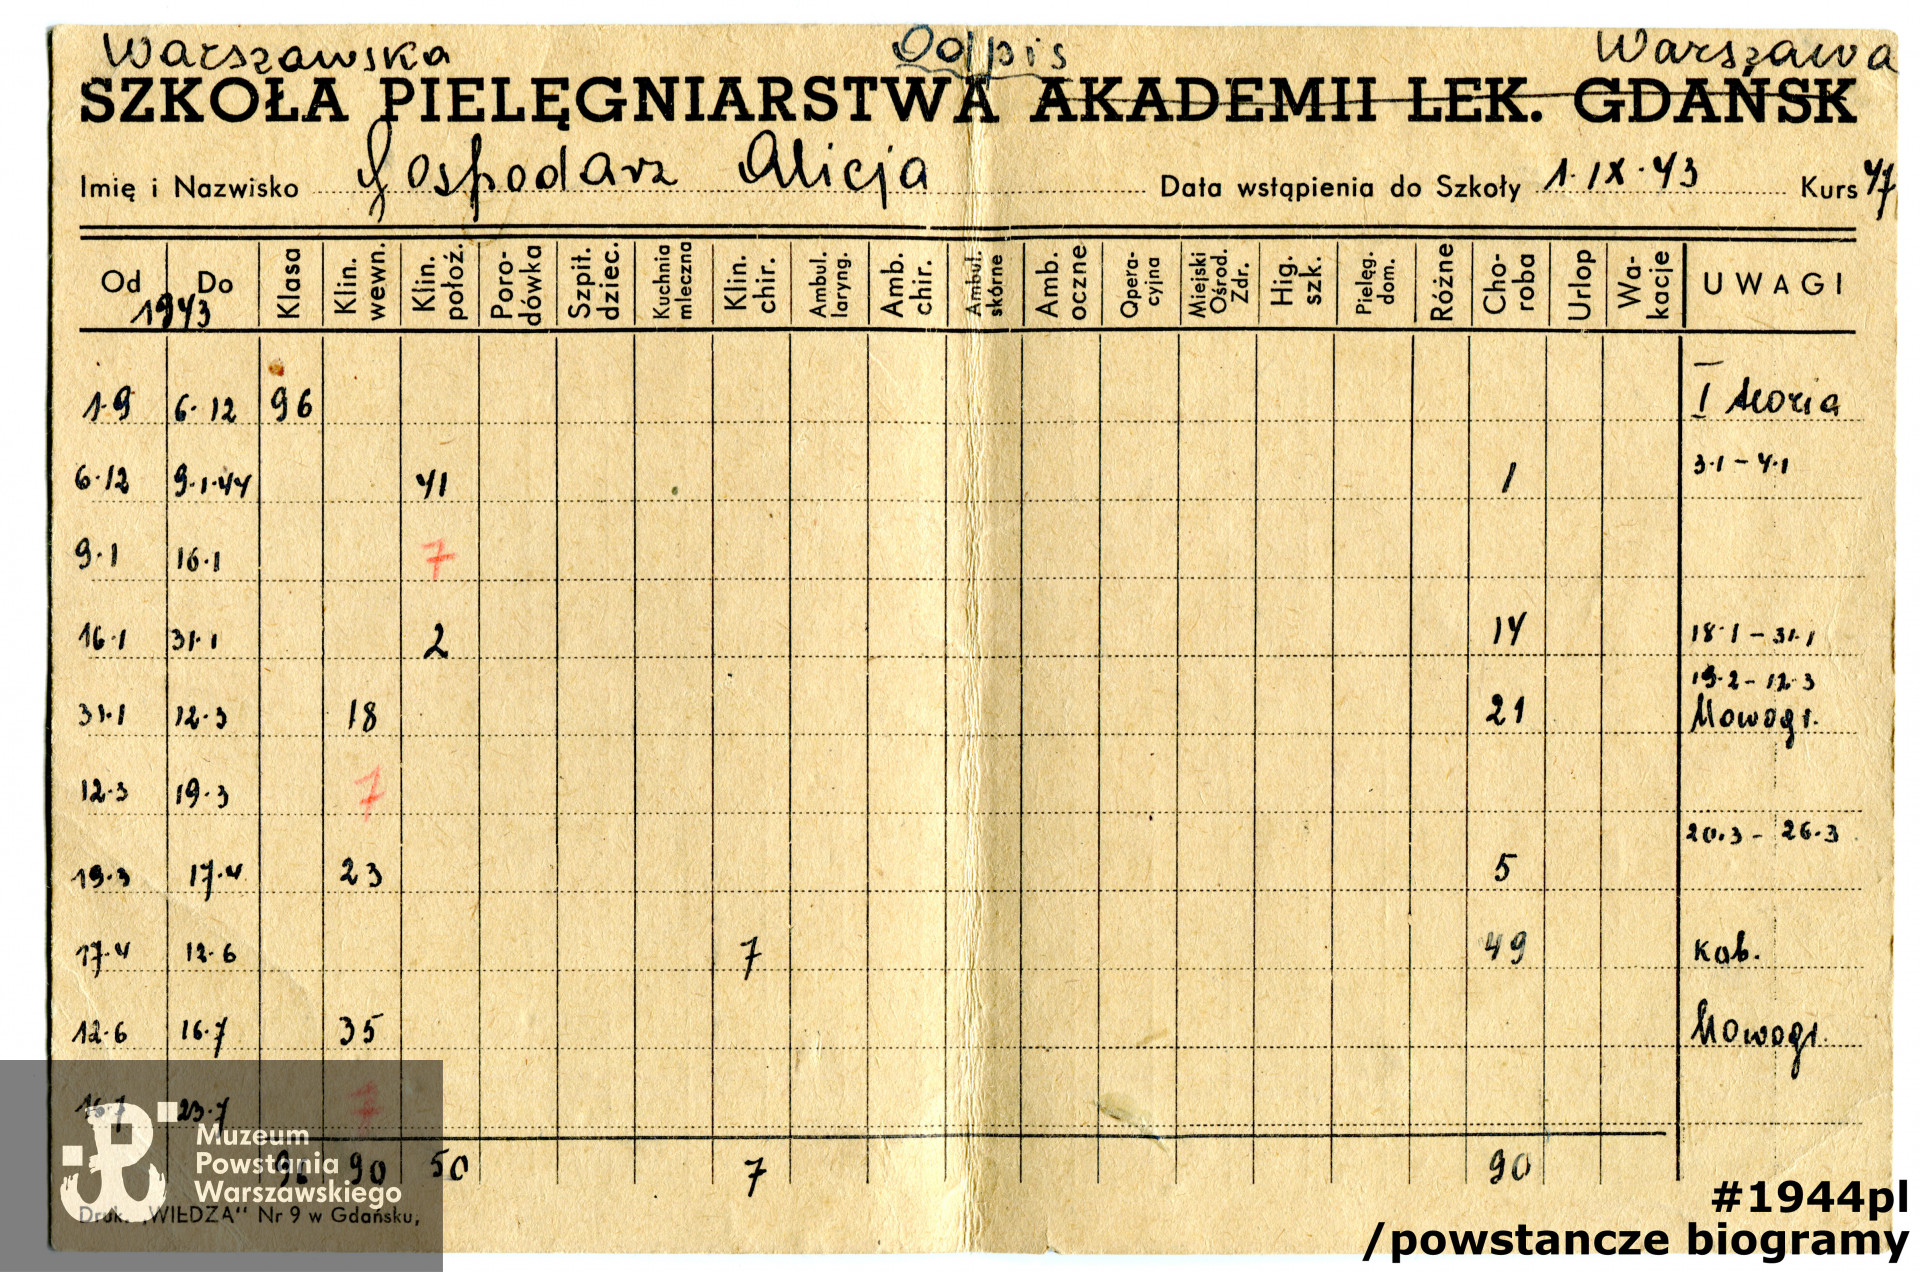 Warszawska Odpis Warszawa
SZKOŁA PIELĘGNIARSTWA AKADEMII LEK. GDAŃSK
Imię i Nazwisko Gospodarz Alicja Data wstąpienia do Szkoły 1.IX.43 Kurs 47
Od Do Klasa Klin. wewn. Klin. położ. Poro-dówka Szpit. dziec. Kuchnia mleczna Klin. chir. Ambul. laryng. Amb. chir. Ambul. skórne Amb. oczne Opera-cyjna Miejski Ośrod. Zdr. Hig. szk. Pielęg. dom. Różne Cho-roba Urlop Wa-kacje UWAGI
1943
1.9 6.12 96 I teoria
6.12 9.1.44 41 1 3.1 – 4.1
9.1 16.1 7
16.1 31.1 2 14 18.1 – 31.1
19.2 – 12.3
31.1 12.3 18 21 Nowogr.
12.3 19.3 7
20.3 – 26.3
19.3 17.4 23 5
17.4 12.6 7 49 Kab.
12.6 16.7 35 Nowogr.
16.7 23.7 7
96 90 50 7 90
Druk. „WIEDZA" Nr 9 w Gdańsku,
Muzeum
Powstania
Warszawskiego
#1944pl
/powstancze biogramy